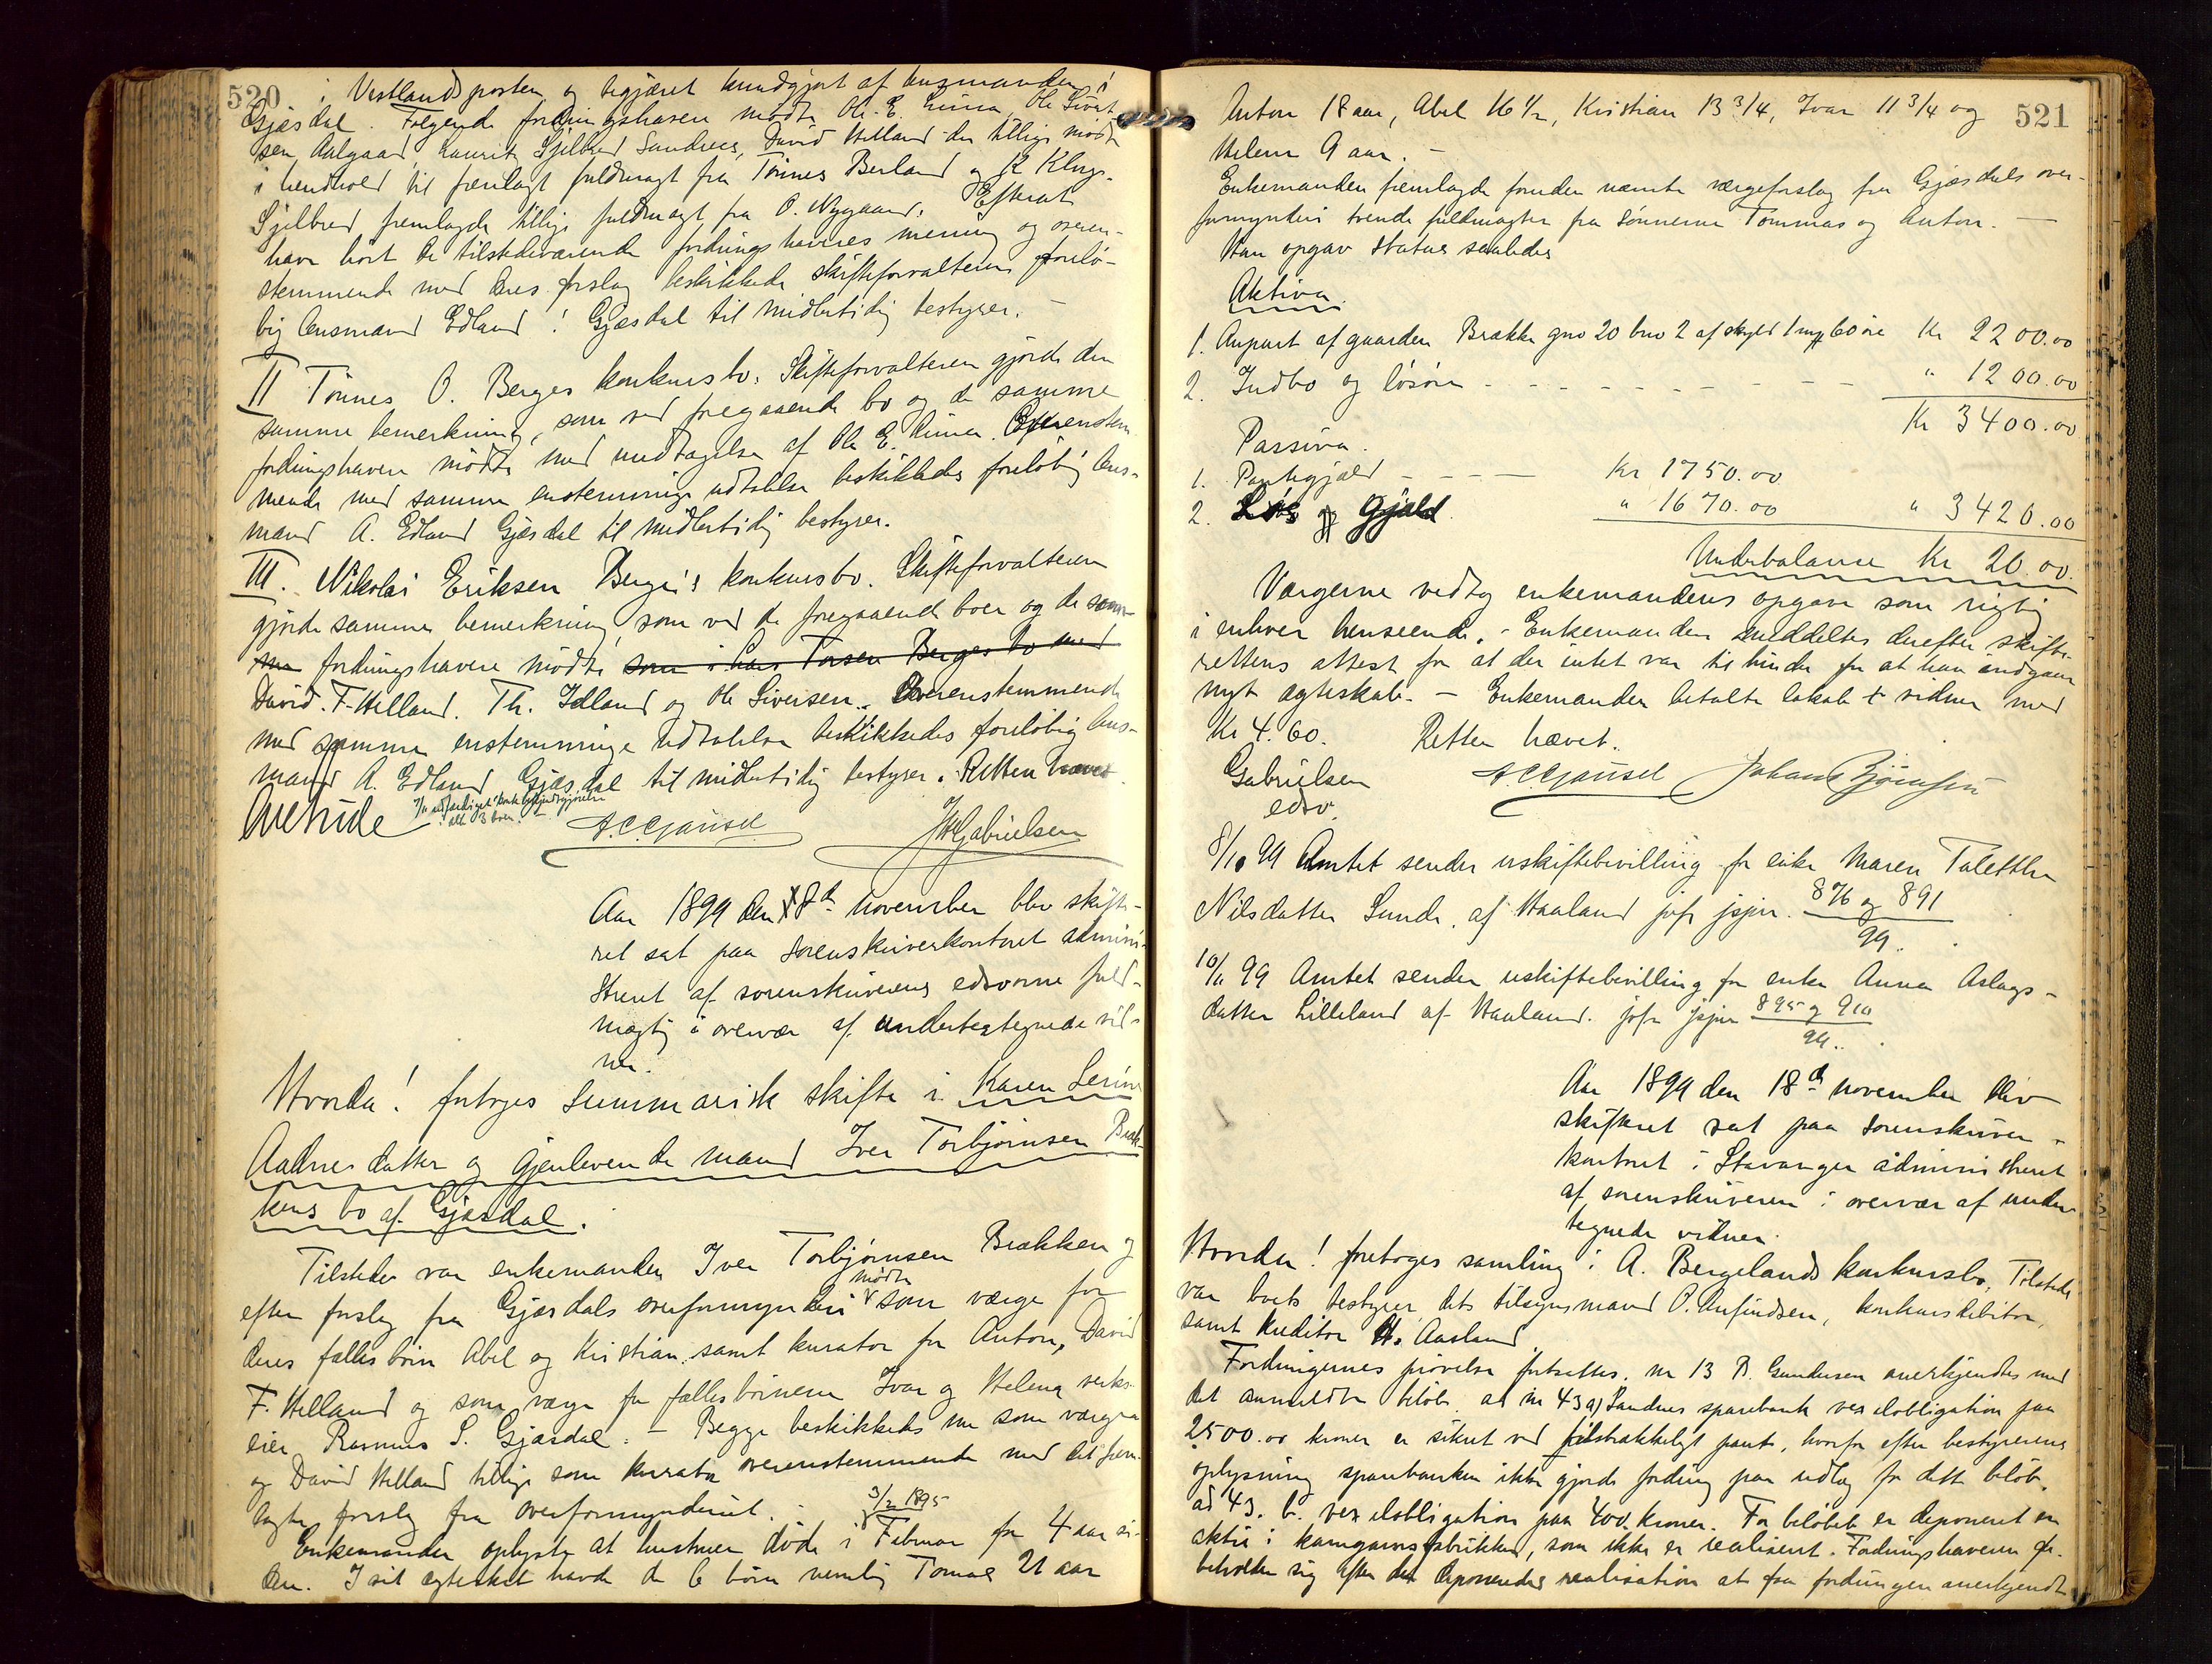 520
i Vestlandsposten og begjæret kundgjort af lensmanden i
Gjæsdal. Følgende fordringshavere mødte Ole E. Lima, Ole Sivert-
sen Aalgaard, Lauritz Sjelbred Sandnes, David Helland der tillige mødte
i henhold til fremlagt fuldmagt fra Tønnes Berland og K Klugs.
Sjelbred fremlagde tillige fuldmagt fra O. Nygaard. Efterat
have hørt de tilstedeværende fordringshaveres mening og overen-
stemmende med deres forslag beskikkede skifteforvalteren forelø-
big lensmand Edland i Gjæsdal til midlertidig bestyrer. –
II Tønnes O. Berges konkursbo. Skifteforvalteren gjorde den
samme bemerkning, som ved foregaaende bo og de samme
fordringshavere mødte med undtagelse af Ole E. Lima. Overenstem-
mende med samme enstemmige udtalelse beskikkedes foreløbig lens-
mand A. Edland Gjæsdal til midlertidig bestyrer.
III. Nikolai Eriksen Berge's konkursbo. Skifteforvalteren
gjorde samme bemerkning som ved de foregaaende boer og de sam-
me fordringshavere mødte som i Lars Torsen Berges bo med
David. F. Helland. Th. Idland og Ole Siversen. Overenstemmende
med samme enstemmige udtalelse beskikkedes foreløbig lens-
mand A. Edland Gjæsdal til midlertidig bestyrer. Retten hævet.
7/11 udfærdiget konkurskundgjørelse
i alle 3 boer. –
A. C. Gausel JHGabrielsen
Aar 1899 den 8de november blev skifte-
ret sat paa sorenskriverkontoret admini-
streret af sorenskriverens edsvorne fuld-
mægtig i overvær af undertegnede vid-
ner.
Hvorda! foretoges summarisk skifte i Karen Serine
Aadnesdatter og gjenlevende mand Iver Torbjørnsen Bræk-
kens bo af Gjæsdal.
Tilstede var enkemanden Iver Torbjørnsen Brækken og
efter forslag fra Gjæsdals overformynderi mødte som værge for
deres fælles børn Abel og Kristian samt kurator for Anton, David
F. Helland og som værge for fællesbørnene Ivar og Helena verks-
eier Rasmus S. Gjæsdal. – Begge beskikkedes nu som værger
og David Helland tillige som kurator overenstemmende med det frem-
lagte forslag fra overformynderiet.
Enkemanden oplyste at hustruen døde i 3/2 1895 Februar for 4 aar si-
den. I sit ægteskab havde de 6 børn nemlig Tomas 21 aar
521
Anton 18 aar, Abel 16 1/2, Kristian 13 3/4, Ivar 11 3/4 og
Helena 9 aar. –
Enkemanden fremlagde foruden nævnte værgeforslag fra Gjæsdals over-
formynderi tvende fuldmagter fra sønnerne Tommas og Anton. –
Han opgav status saaledes
Aktiva.
1. Anpart af gaarden Brække gno 20 bno 2 af skyld 1 mrk 60 øre Kr 2200.00
2. Indbo og løsøre - - - - - - - - - " 1200.00
Kr 3400.00
Passiva.
1. Pantegjæld - - - - Kr 1750.00
2. Løs gjæld. " 1670.00 " 3420.00
Underbalance Kr 20.00.
Værgerne vedtog enkemandens opgave som rigtig
i enhver henseende. – Enkemanden meddeltes derefter skifte-
rettens attest for at der intet var til hinder for at han indgaar
nyt ægteskab. – Enkemanden betalte lokale & vidner med
Kr 4.60. Retten hævet.
Gabrielsen A. C. Gausel Johan Bjørnsen
edsv.
8/10 99 Amtet sender uskiftebevilling for enke Maren Talette
Nilsdatter Lunde af Haaland jvfr jrjnr. 876 og 891
99.
10/11 99 Amtet sender uskiftebevilling for enke Anna Aslags-
datter Lilleland af Haaland. jvfr jrjnr 895 og 910
99.
Aar 1899 den 18de november blev
skifteret sat paa sorenskriver-
kontoret i Stavanger administreret
af sorenskriveren i overvær af under-
tegnede vidner.
Hvorda! foretoges samling i A. Bergelands konkursbo. Tilstede
var boets bestyrer dets tilsynsmand O. Anfindsen, konkursdebitor,
samt kreditor H. Aasland.
Fordringernes prøvelse fortsattes. nr 13 P. Gundersen anerkjendtes med
det anmeldte beløb. ad nr 43 a) Sandnes sparebank vexelobligation paa
2500.00 kroner er sikret ved tilstrækkeligt pant, hvorfor efter bestyrerens
oplysning sparebanken ikke gjorde fordring paa udlæg for dette beløb.
ad 43. b. vexelobligation paa 400 kroner. For beløbet er deponeret en
aktie i kamgarnsfabrikken, som ikke er realiseret. Fordringshaveren for-
beholder sig efter det deponeredes realisation at faa fordringen anerkjendt